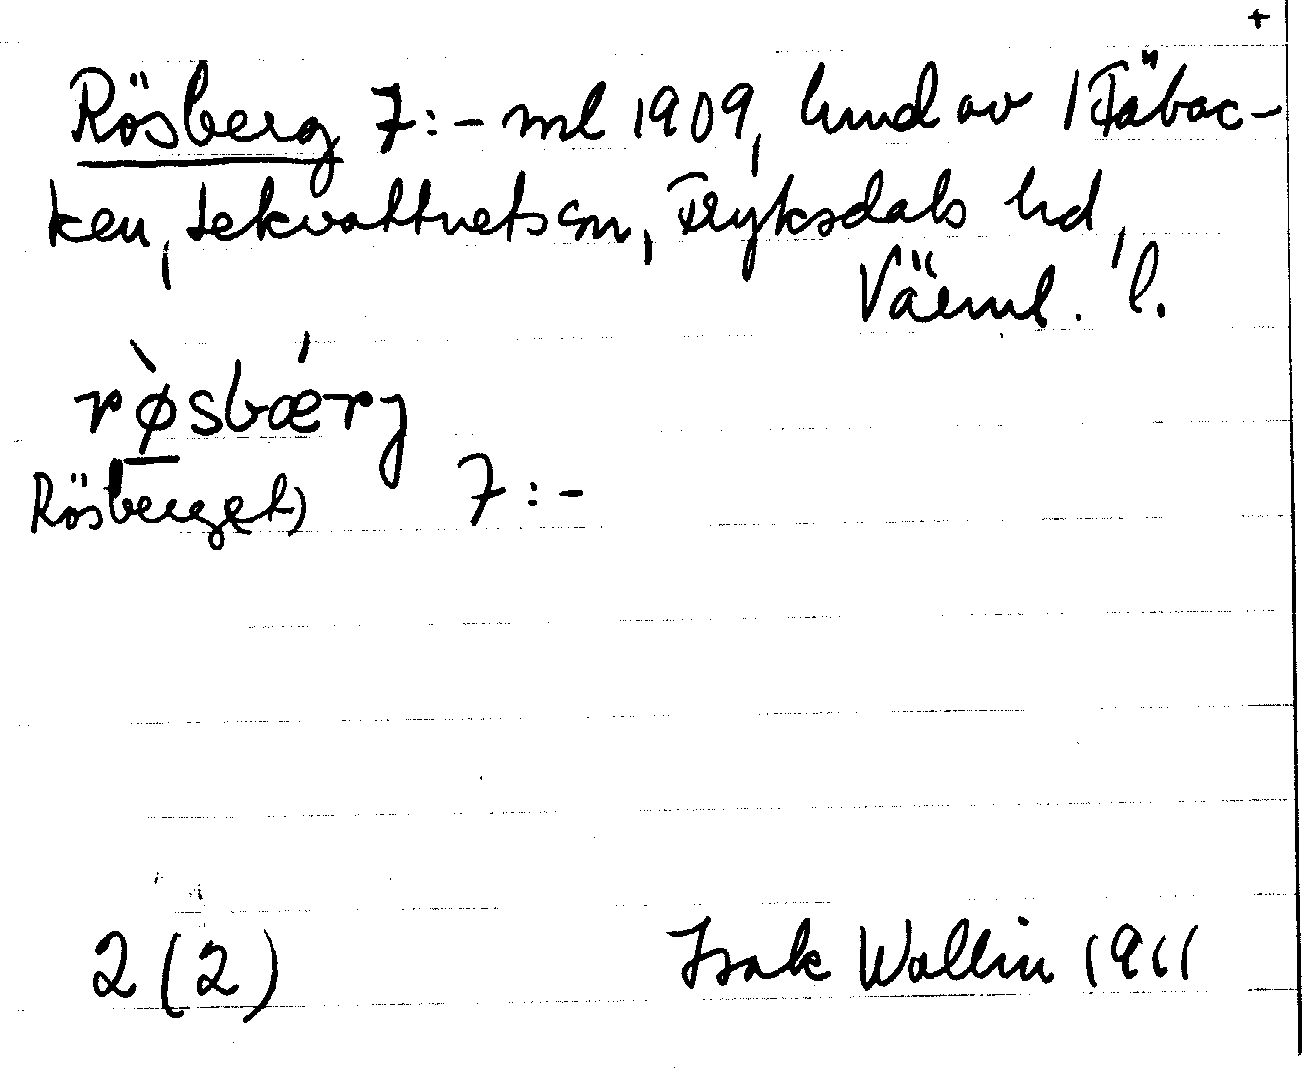 +
Rösberg 7:- ml 1909, lund av 1 Fäbac-
ken, Lekvattnets sn, Fryksdals hd,
Värml. l.
rø̀sbǽrj
Rösberget) 7:-
2 (2) Isak Wallin 1911